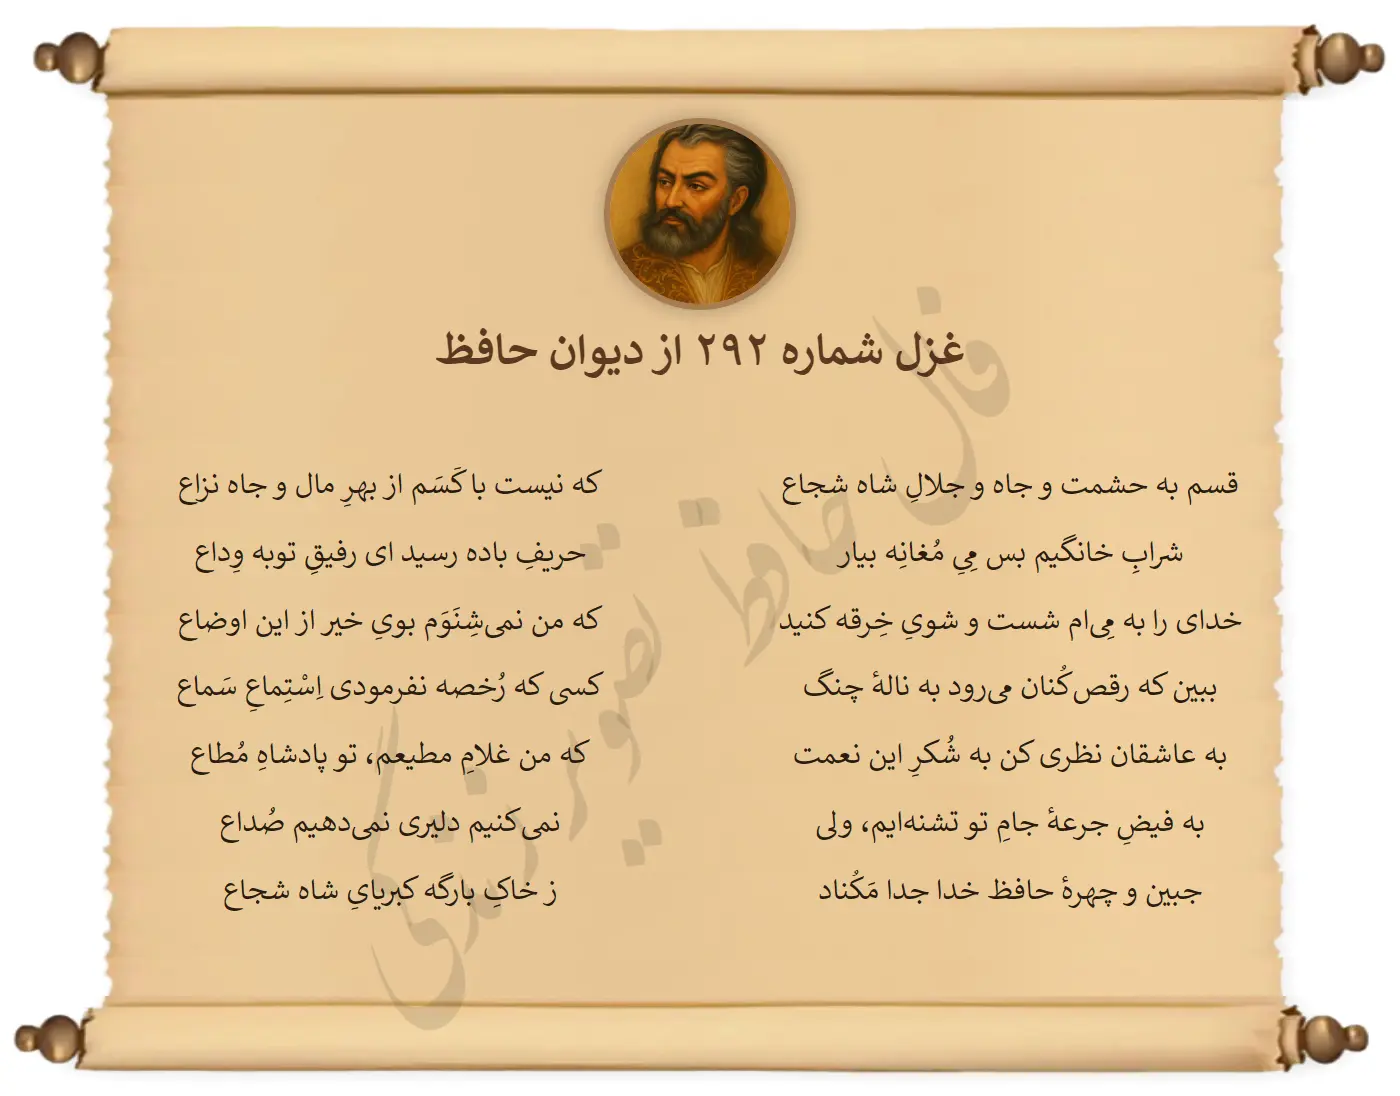 غزل شماره ۲۹۲ از دیوان حافظ
قسم به حشمت و جاه و جلالِ شاه شجاع
که نیست با کَسَم از بهرِ مال و جاه نزاع
شرابِ خانگیم بس مِیِ مُغانِه بیار
حریفِ باده رسید ای رفیقِ توبه وِداع
خدای را به مِی‌ام شست و شویِ خِرقه کنید
که من نمی‌شِنَوَم بویِ خیر از این اوضاع
ببین که رقص‌کُنان می‌رود به نالهٔ چنگ
کسی که رُخصه نفرمودی اِسْتِماعِ سَماع
به عاشقان نظری کن به شُکرِ این نعمت
که من غلامِ مطیعم، تو پادشاهِ مُطاع
به فیضِ جرعهٔ جامِ تو تشنه‌ایم، ولی
نمی‌کنیم دلیری نمی‌دهیم صُداع
جبین و چهرهٔ حافظ خدا جدا مَکُناد
ز خاکِ بارگه کبریایِ شاه شجاع
فال حافظ تصویر زندگی